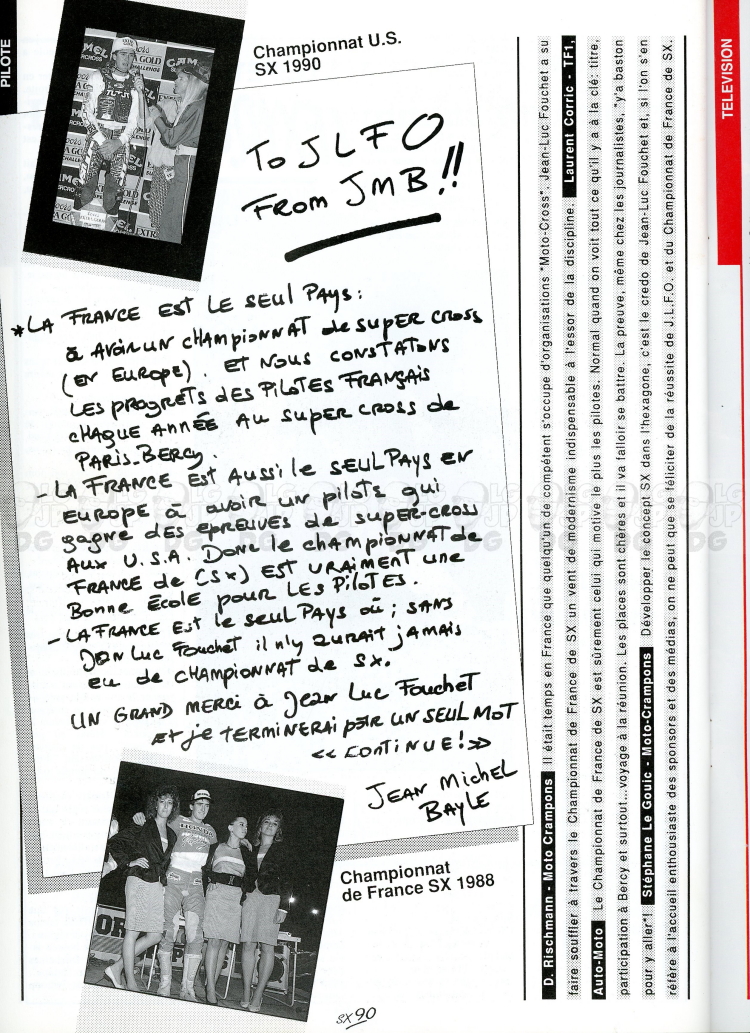 PILOTE
Championnat U.S.
SX 1990
TO JLFO
FROM JMB!!
*LA FRANCE EST LE SEUL PAYS:
à AVOIR UN CHAMPIONNAT de SUPER CROSS
(EN EUROPE). ET NOUS CONSTATONS
LES PROGRETS DES PILOTES FRANÇAIS
CHAQUE ANNÉE AU SUPER CROSS de
PARIS-BERCY.
- LA FRANCE EST AUSSI LE SEUL PAYS EN
EUROPE à avoir un pilots qui
gagne des epreuves de super-cross
AUX U.S.A. Donc le championnat de
FRANCE de (Sx) EST VRAIMENT une
Bonne École pour LES PILOTES.
- LA FRANCE Est le seul PAYS où; SANS
JEAN Luc Fouchet il n'y aurait jamais
eu de CHAMPIONNAT de Sx.
UN GRAND MERCI à Jean Luc Fouchet
et je TERMINERAI par UN SEUL MOT
<< CONTINUE! >>
JEAN Michel
BAYLE
Championnat
de France SX 1988
SX 90
TELEVISION
D. Rischmann - Moto Crampons Il était temps en France que quelqu'un de compétent s'occupe d'organisations "Moto-Cross". Jean-Luc Fouchet a su
faire souffler à travers le Championnat de France de SX un vent de modernisme indispensable à l'essor de la discipline. Laurent Corric - TF1,
Auto-Moto Le Championnat de France de SX est sûrement celui qui motive le plus les pilotes. Normal quand on voit tout ce qu'il y a à la clé: titre,
participation à Bercy et surtout...voyage à la réunion. Les places sont chères et il va falloir se battre. La preuve, même chez les journalistes, "y'a baston
pour y aller"! Stéphane Le Gouic - Moto-Crampons Développer le concept SX dans l'hexagone, c'est le credo de Jean-Luc Fouchet et, si l'on s'en
réfère à l'accueil enthousiaste des sponsors et des médias, on ne peut que se féliciter de la réussite de J.L.F.O. et du Championnat de France de SX.